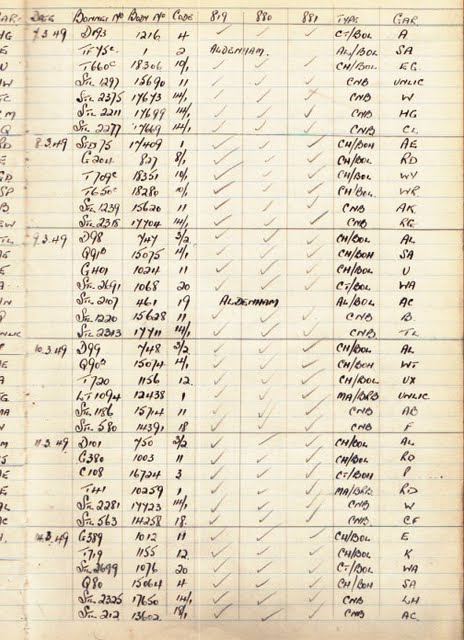 GAR. DATE BONNET No BODY No CODE 819 880 881 TYPE GAR.
HG 7.3.49 D193 1216 4 ✓ ✓ ✓ CT/BOL A
E TF75c 1 2 ALDENHAM. AL/BOL SA
U T660c 18306 10/1 ✓ ✓ ✓ CH/BOL EG
HW STL 1297 15690 11 ✓ ✓ ✓ CNB UNLIC
TC STL 2375 17673 14/1 ✓ ✓ ✓ CNB W
CM STL 2211 17699 14/1 ✓ ✓ ✓ CNB HG
Q STL 2277 17669 14/1 ✓ ✓ ✓ CNB CL
RD 8.3.49 STD 75 17409 1 ✓ ✓ ✓ CH/BOH AE
E G204 827 8/1 ✓ ✓ ✓ CH/BOL RD
GD T709c 18351 10/1 ✓ ✓ ✓ CH/BOL WY
SP T650c 18280 10/1 ✓ ✓ ✓ CH/BOL. WR
B STL 1239 15620 11 ✓ ✓ ✓ CNB AK
EW STL 2318 17704 14/1 ✓ ✓ ✓ CNB
TL 9.3.49 D98 747 3/2 ✓ ✓ ✓ CH/BOL AL
Q91B 15075 14/1 ✓ ✓ ✓ CH/BOH SA
E G401 1024 11 ✓ ✓ ✓ CH/BOL U
STL 2691 1068 20 ✓ ✓ ✓ CT/BOL WA
HN STL 2107 461 19 ALDENHAM AL/BOL AC
STL 1220 15628 11 ✓ ✓ ✓ CNB B
UNLIC STL 2313 17711 14/1 ✓ ✓ ✓ CNB TL
10.3.49 D99 748 3/2 ✓ ✓ ✓ CH/BOL AL
AE Q90B 15074 14/1 ✓ ✓ ✓ CH/BOH WT
A T720 1156 12. ✓ ✓ ✓ CH/BOL UX
LT 1094 12438 1 ✓ ✓ ✓ MA/BRB UNLIC
MA STL 1186 15714 11 ✓ ✓ ✓ CNB AB
N STL 580 14391 18 ✓ ✓ ✓ CNB F
M 11.3.49 D101 750 3/2 ✓ ✓ ✓ CH/BOL AL
G380 1003 11 ✓ ✓ ✓ CH/BOL RD
AE C108 16724 3 ✓ ✓ ✓ CT/BOH P
E T41 10259 1 ✓ ✓ ✓ MA/BRB RD
AL STL 2281 17723 14/1 ✓ ✓ ✓ CNB W
AC STL 563 14258 18. ✓ ✓ ✓ CNB CF
G389 1012 11 ✓ ✓ ✓ CH/BOL E
T719 1155 12 ✓ ✓ ✓ CH/BOL K
STL 2699 1076 20 ✓ ✓ ✓ CT/BOL WA
Q80 15064 4 ✓ ✓ ✓ CH/BOH SA
STL 2325 17650 14/1 ✓ ✓ ✓ CNB LH
STL 212 13602 18/1 ✓ ✓ ✓ CNB AC